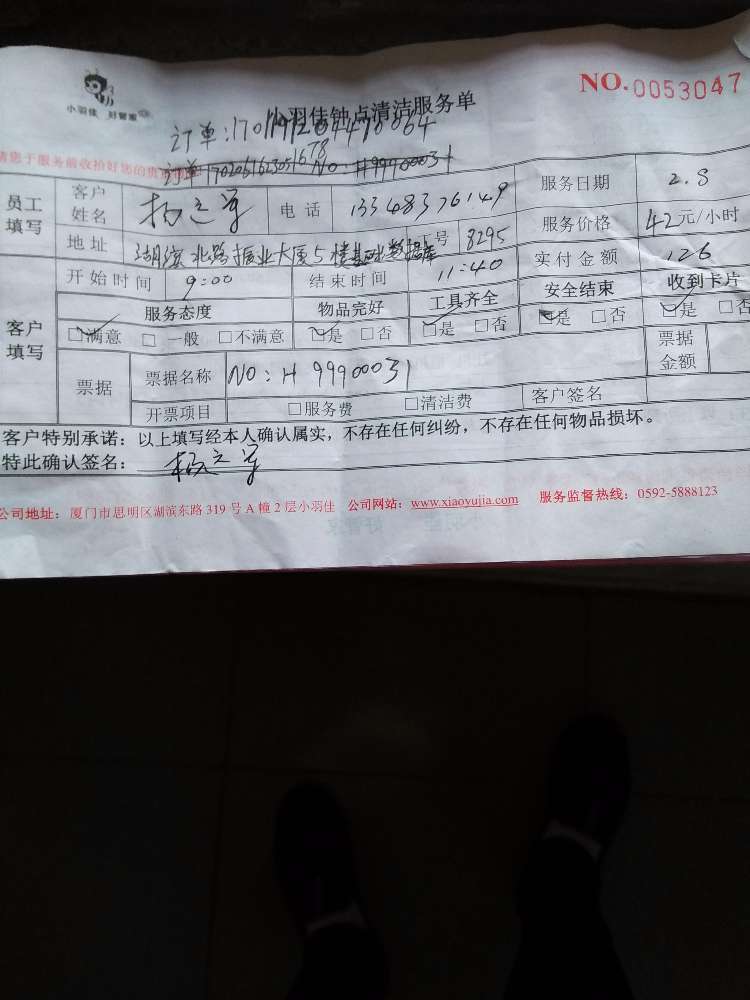 小羽佳 好管家
小羽佳钟点清洁服务单
NO.0053047
请您于服务前收拾好您的贵重物品
NO:H99900031
员工填写
客户姓名
电话 13348376149
服务日期 2.8
地址 湖滨北路振业大厦5楼
号 8295
服务价格 42元/小时
开始时间 9:00
结束时间 11:40
实付金额 126
客户填写
服务态度 物品完好 工具齐全 安全结束 收到卡片
□满意 □一般 □不满意 □是 □否 □是 □否 □是 □否 □是 □否
票据
票据名称 NO:H 99900031
票据金额
开票项目 □服务费 □清洁费 客户签名
客户特别承诺:以上填写经本人确认属实,不存在任何纠纷,不存在任何物品损坏。
特此确认签名:
公司地址:厦门市思明区湖滨东路319号A幢2层小羽佳 公司网站:www.xiaoyujia.com 服务监督热线:0592-5888123